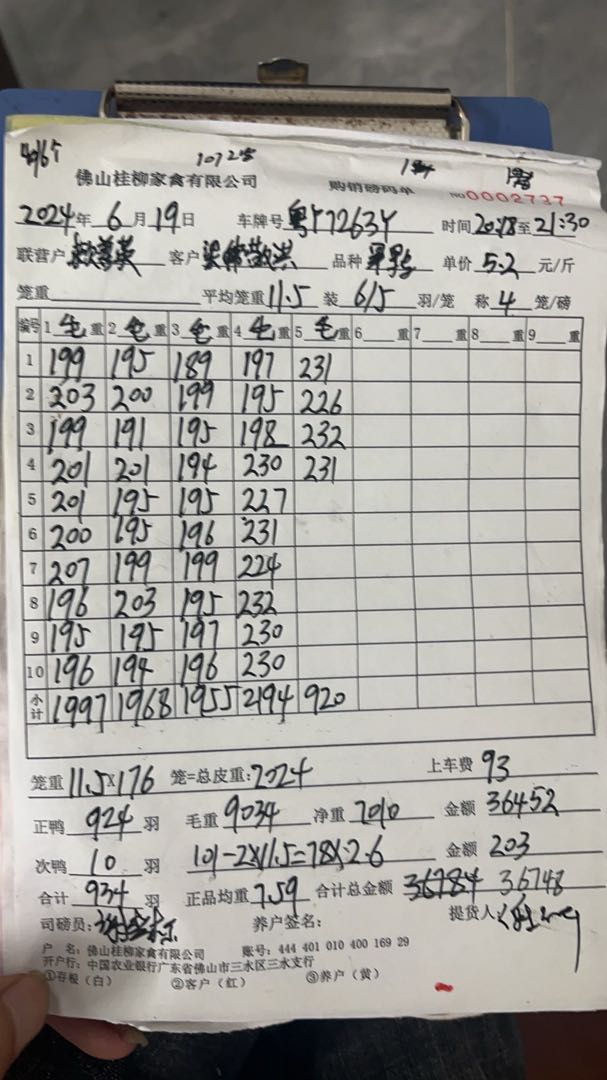 4965 10725
佛山桂柳家禽有限公司 购销磅码单 No 0002737
2024年 6月19日 车牌号 粤Y72634 时间 20:18至21:30
联营户 客户 品种 单价 5.2 元/斤
笼重 平均笼重 11.5 装 6/5 羽/笼 称 4 笼/磅
编号 1 毛重 2 毛重 3 毛重 4 毛重 5 毛重 6 重 7 重 8 重 9 重
1 199 195 189 197 231
2 203 200 199 195 226
3 199 191 195 198 232
4 201 201 194 230 231
5 201 195 195 227
6 200 195 196 231
7 207 199 199 224
8 196 203 195 232
9 195 195 197 230
10 196 194 196 230
小计 1997 1968 1955 2194 920
笼重 11.5×176 笼=总皮重:2024 上车费 93
正鸭 924 羽 毛重 9034 净重 7010 金额 36452
次鸭 10 羽 101-2×11.5=78×2.6 金额 203
合计 934 羽 正品均重 7.59 合计总金额 36784 36748
司磅员: 养户签名: 提货人
户 名:佛山桂柳家禽有限公司 账号:444 401 010 400 169 29
开户行:中国农业银行广东省佛山市三水区三水支行
①存根(白) ②客户(红) ③养户(黄)